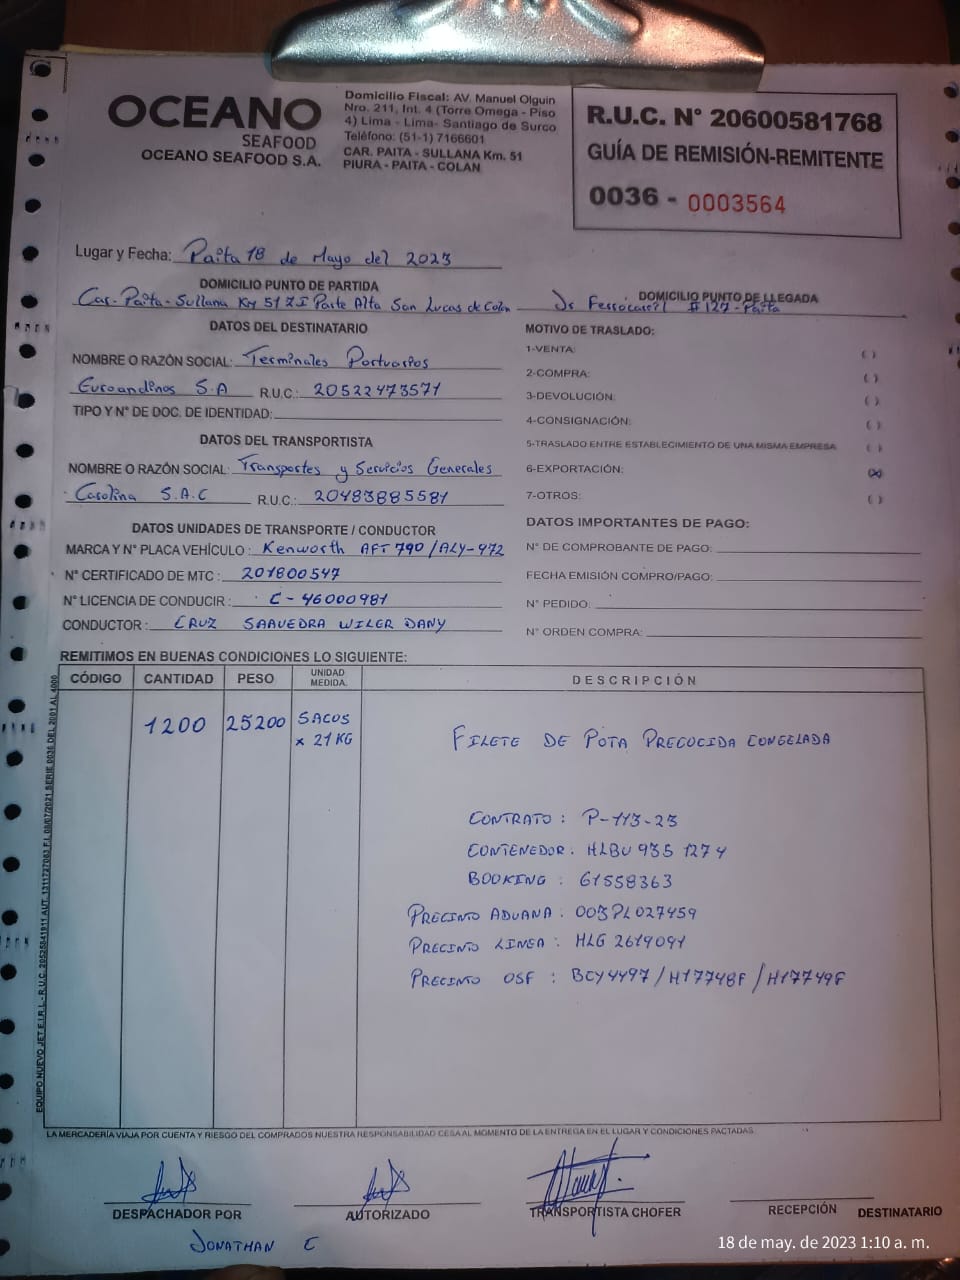 OCEANO
SEAFOOD
OCEANO SEAFOOD S.A.
Domicilio Fiscal: AV. Manuel Olguin
Nro. 211, Int. 4 (Torre Omega - Piso
4) Lima - Lima- Santiago de Surco
Teléfono: (51-1) 7166601
CAR. PAITA - SULLANA Km. 51
PIURA - PAITA - COLAN
R.U.C. N° 20600581768
GUÍA DE REMISIÓN-REMITENTE
0036 - 0003564
Lugar y Fecha: Paita 18 de Mayo del 2023
DOMICILIO PUNTO DE PARTIDA
Car. Paita - Sullana Km 51 Z I Parte Alta San Lucas de Colan
DOMICILIO PUNTO DE LLEGADA
Jr Ferrocarril # 127 - Paita
DATOS DEL DESTINATARIO
NOMBRE O RAZÓN SOCIAL: Terminales Portuarios
Euroandinos S.A R.U.C.: 20522473571
TIPO Y N° DE DOC. DE IDENTIDAD:
DATOS DEL TRANSPORTISTA
NOMBRE O RAZÓN SOCIAL: Transportes y Servicios Generales
Carolina S.A.C R.U.C.: 20483885581
DATOS UNIDADES DE TRANSPORTE / CONDUCTOR
MARCA Y N° PLACA VEHÍCULO: Kenworth AFT 790 / ALY-972
N° CERTIFICADO DE MTC: 201800547
N° LICENCIA DE CONDUCIR: C - 46000981
CONDUCTOR: CRUZ SAAVEDRA WILER DANY
MOTIVO DE TRASLADO:
1-VENTA: ( )
2-COMPRA: ( )
3-DEVOLUCIÓN: ( )
4-CONSIGNACIÓN: ( )
5-TRASLADO ENTRE ESTABLECIMIENTO DE UNA MISMA EMPRESA ( )
6-EXPORTACIÓN: (X)
7-OTROS: ( )
DATOS IMPORTANTES DE PAGO:
N° DE COMPROBANTE DE PAGO:
FECHA EMISIÓN COMPRO/PAGO:
N° PEDIDO:
N° ORDEN COMPRA:
REMITIMOS EN BUENAS CONDICIONES LO SIGUIENTE:
CÓDIGO CANTIDAD PESO UNIDAD MEDIDA. DESCRIPCIÓN
1200 25200 SACOS
x 21 KG
FILETE DE POTA PRECOCIDA CONGELADA
CONTRATO: P-113-23
CONTENEDOR: HLBU 935 1274
BOOKING: 61558363
PRECINTO ADUANA: 003PL027459
PRECINTO LINEA: HLG 2619091
PRECINTO OSF: BCY4497 / H17748F / H17749F
EQUIPO NUEVO JET E.I.R.L - R.U.C. 20525841911 AUT. 1211727083 F.I. 08/07/2021 SERIE 0036 DEL 2001 AL 4000
LA MERCADERÍA VIAJA POR CUENTA Y RIESGO DEL COMPRADOS NUESTRA RESPONSABILIDAD CESA AL MOMENTO DE LA ENTREGA EN EL LUGAR Y CONDICIONES PACTADAS.
DESPACHADOR POR AUTORIZADO TRANSPORTISTA CHOFER RECEPCIÓN DESTINATARIO
JONATHAN C
18 de may. de 2023 1:10 a. m.